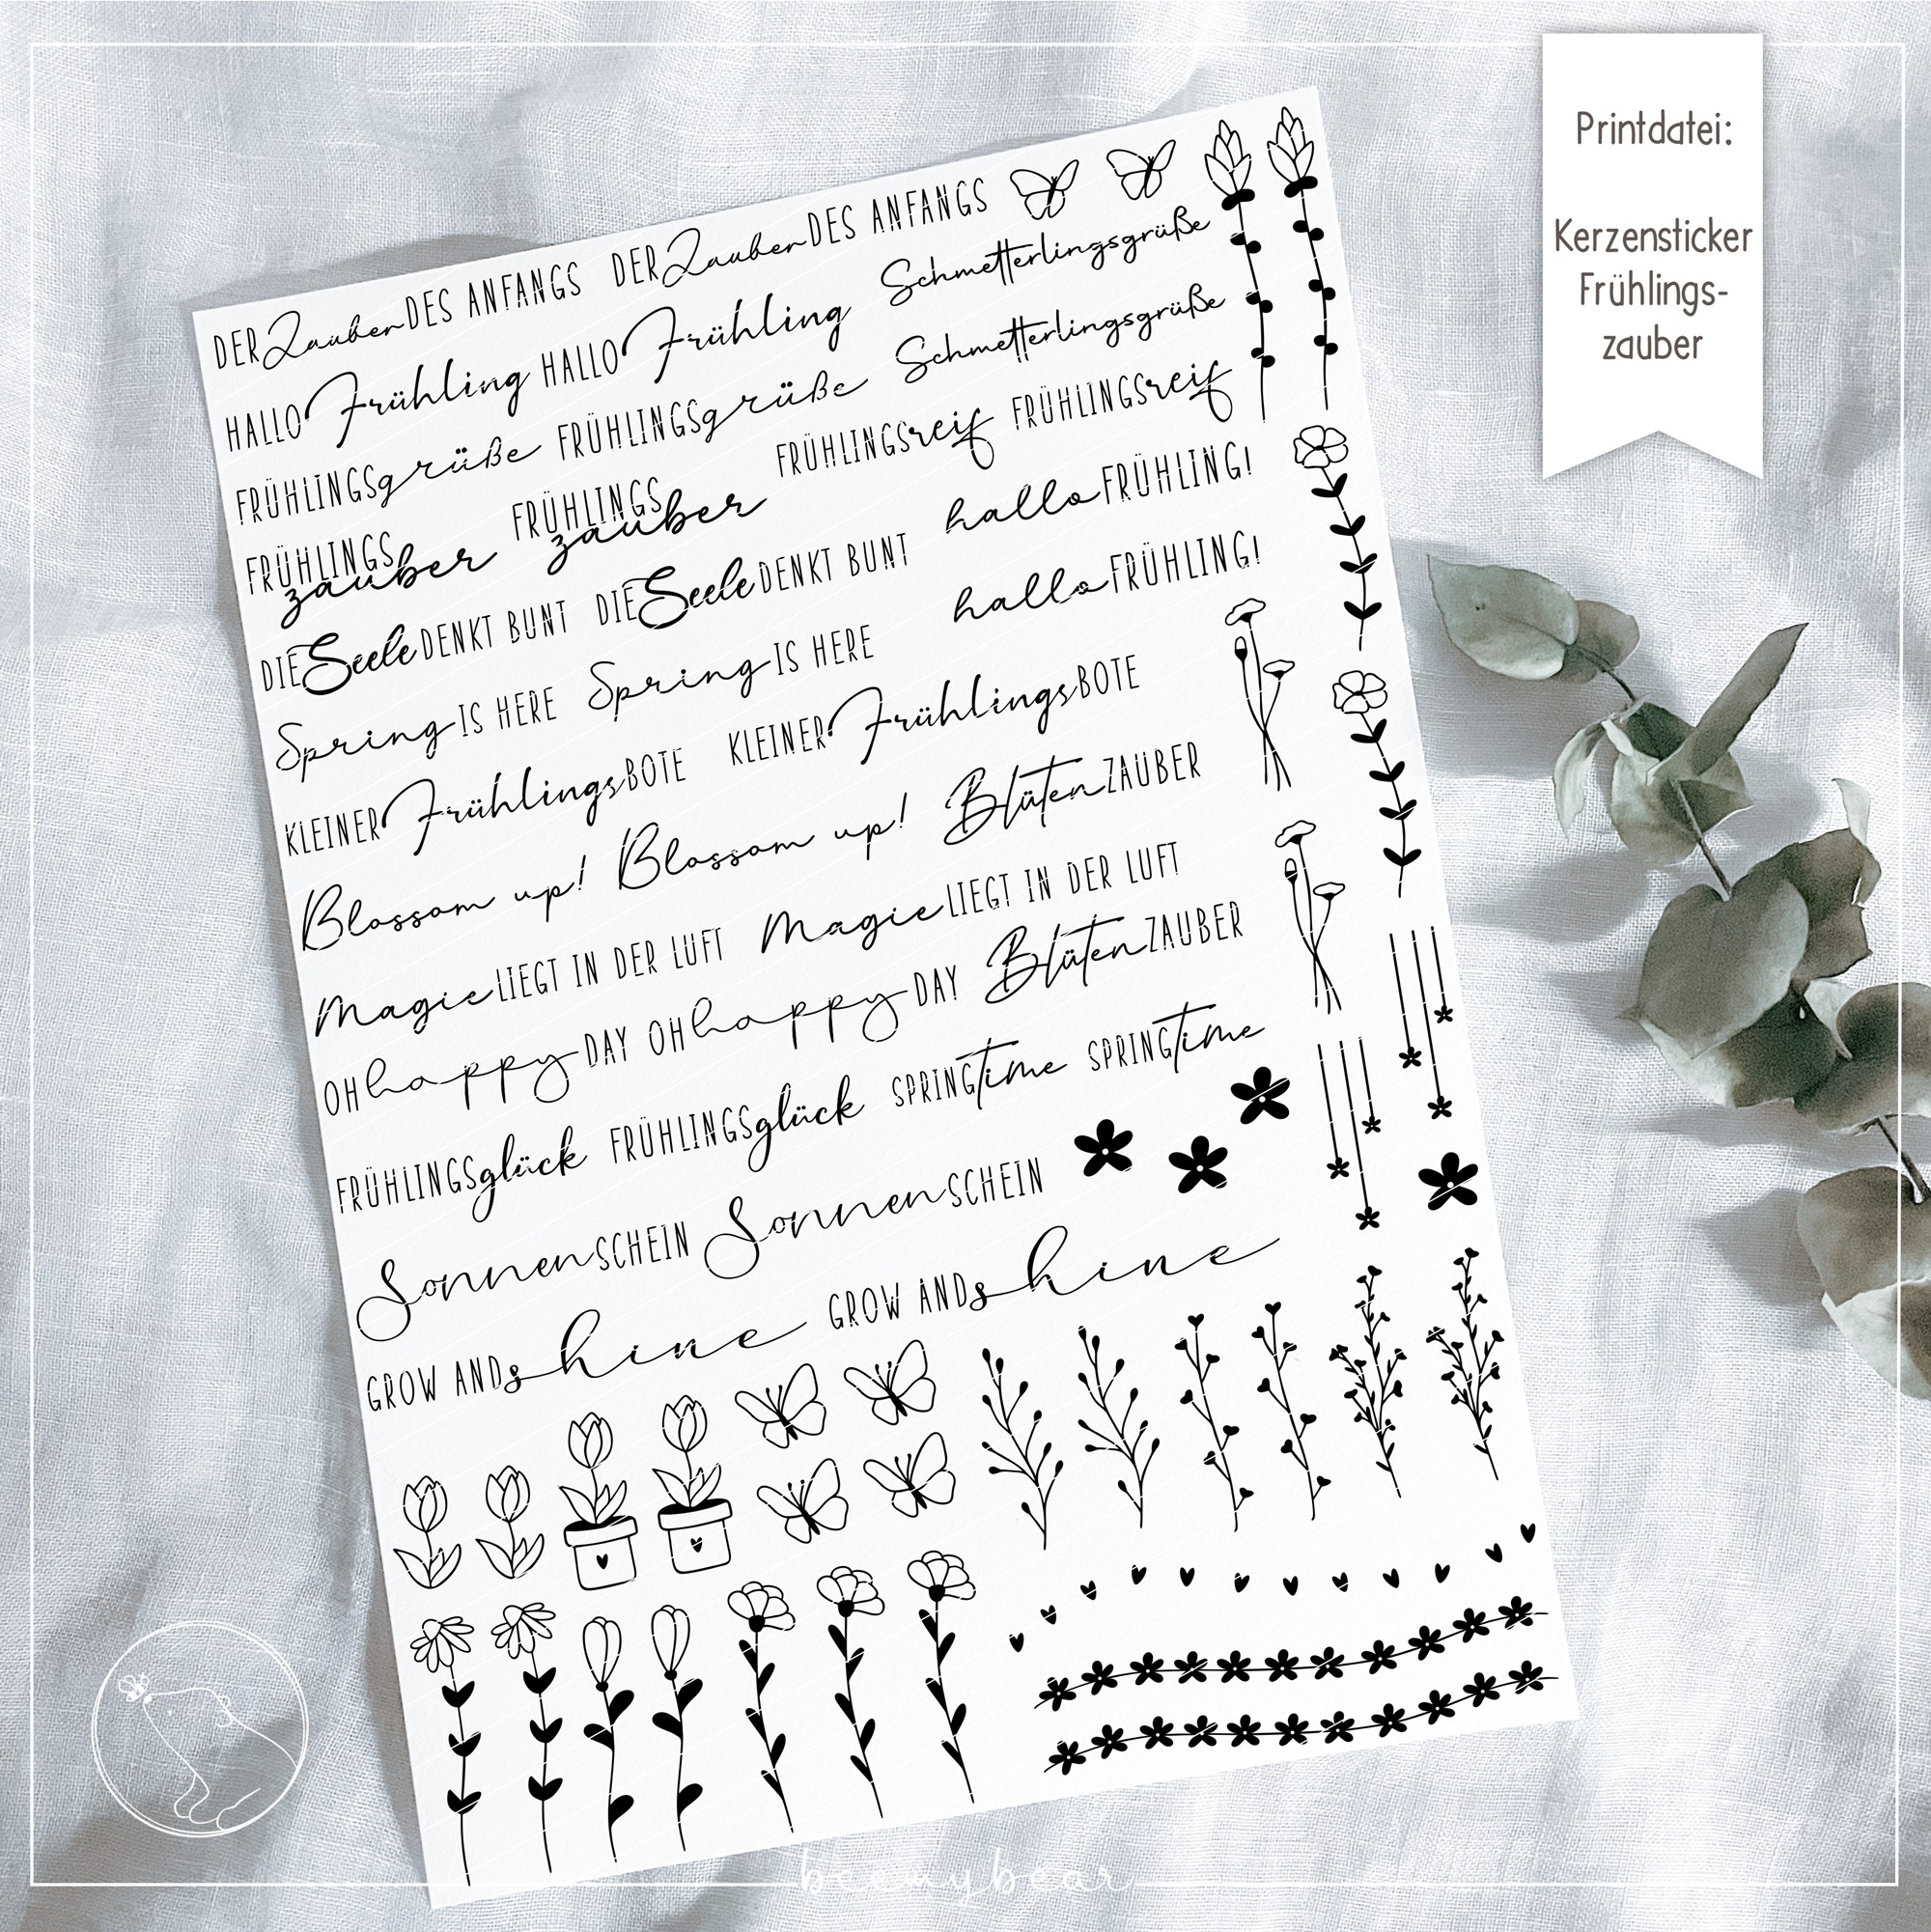 Printdatei:
Kerzensticker
Frühlings-
zauber
DER Zauber DES ANFANGS DER Zauber DES ANFANGS
HALLO Frühling HALLO Frühling Schmetterlingsgrüße
FRÜHLINGSgrüße FRÜHLINGSgrüße Schmetterlingsgrüße
FRÜHLINGS zauber FRÜHLINGS zauber FRÜHLINGSreif FRÜHLINGSreif
DIE Seele DENKT BUNT DIE Seele DENKT BUNT hallo FRÜHLING!
Spring IS HERE Spring IS HERE hallo FRÜHLING!
KLEINER FrühlingsBOTE KLEINER FrühlingsBOTE
Blossom up! Blossom up! BlütenZAUBER
Magie LIEGT IN DER LUFT Magie LIEGT IN DER LUFT
OH happy DAY OH happy DAY BlütenZAUBER
FRÜHLINGSglück FRÜHLINGSglück SPRINGtime SPRINGtime
SonnenSCHEIN SonnenSCHEIN
GROW AND shine GROW AND shine
beemybear